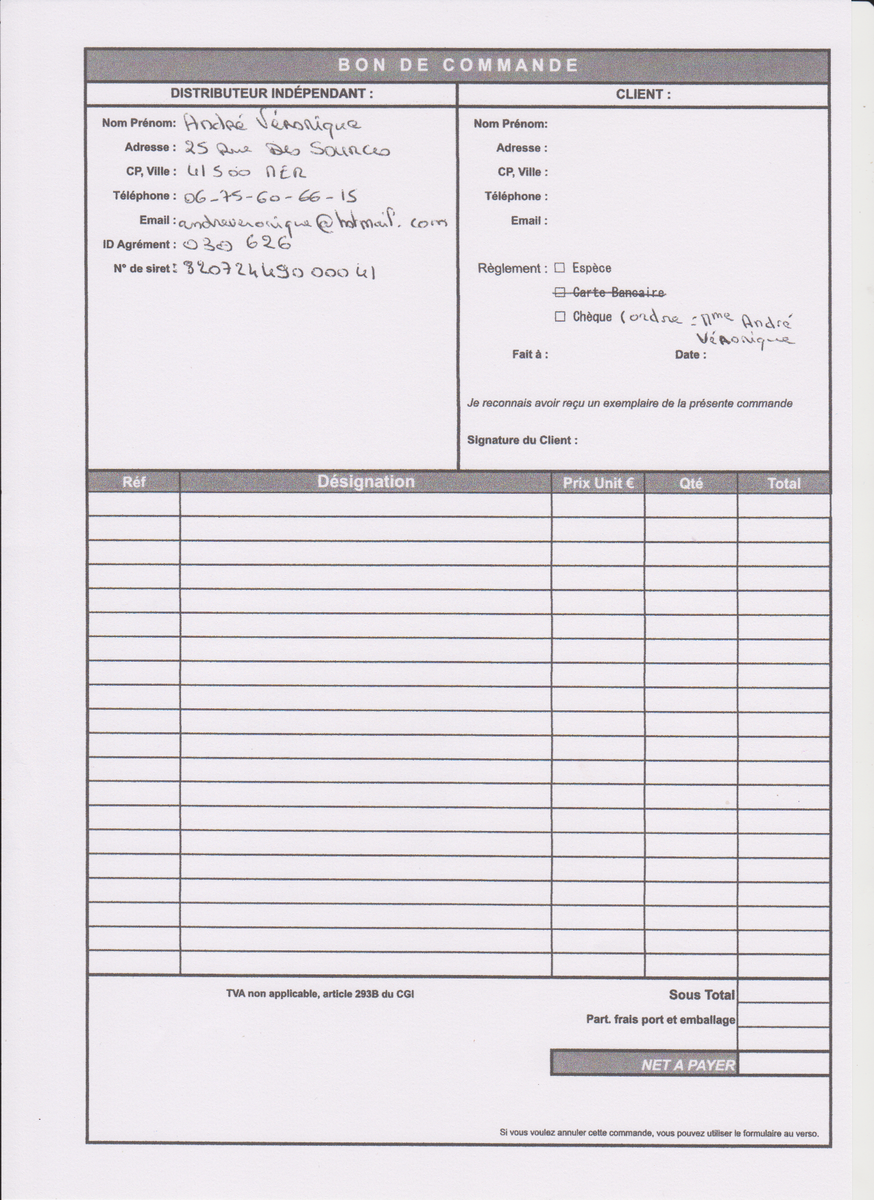 BON DE COMMANDE
DISTRIBUTEUR INDÉPENDANT :
Nom Prénom: André Véronique
Adresse : 25 Rue Des Sources
CP, Ville : 41500 MER
Téléphone : 06-75-60-66-15
Email : andreveronique@hotmail.com
ID Agrément : 030 626
N° de siret : 82072449000041
CLIENT :
Nom Prénom:
Adresse :
CP, Ville :
Téléphone :
Email :
Règlement : ☐ Espèce
☐ Carte Bancaire
☐ Chèque (ordre : Mme André
Véronique
Fait à : Date :
Je reconnais avoir reçu un exemplaire de la présente commande
Signature du Client :
Réf Désignation Prix Unit € Qté Total
TVA non applicable, article 293B du CGI
Sous Total
Part. frais port et emballage
NET A PAYER
Si vous voulez annuler cette commande, vous pouvez utiliser le formulaire au verso.